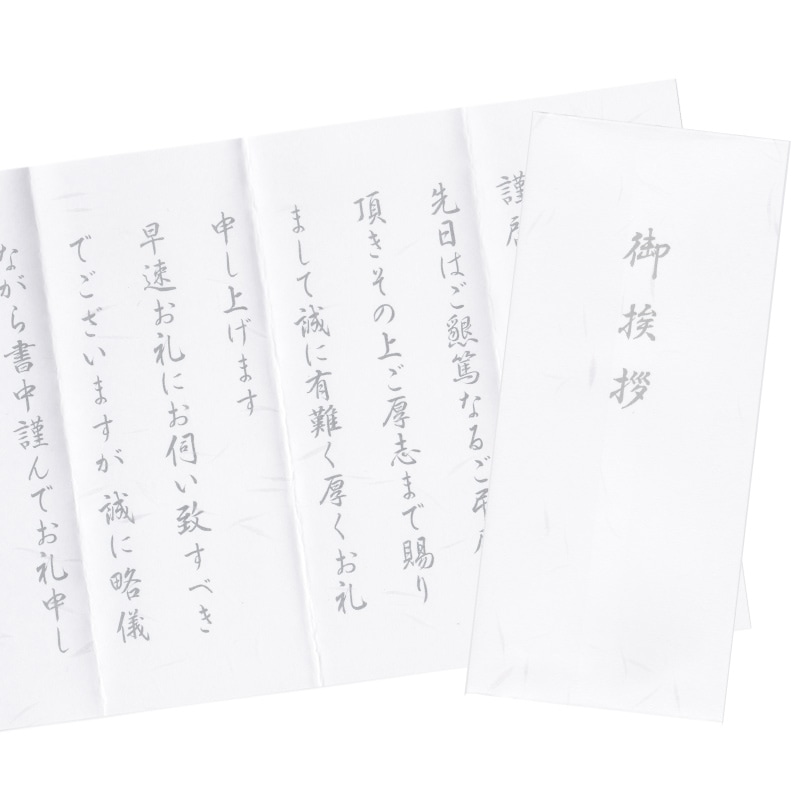 御挨拶
謹
先日はご懇篤なるご弔
頂きその上ご厚志まで賜り
まして誠に有難く厚くお礼
申し上げます
早速お礼にお伺い致すべき
でございますが誠に略儀
ながら書中謹んでお礼申し